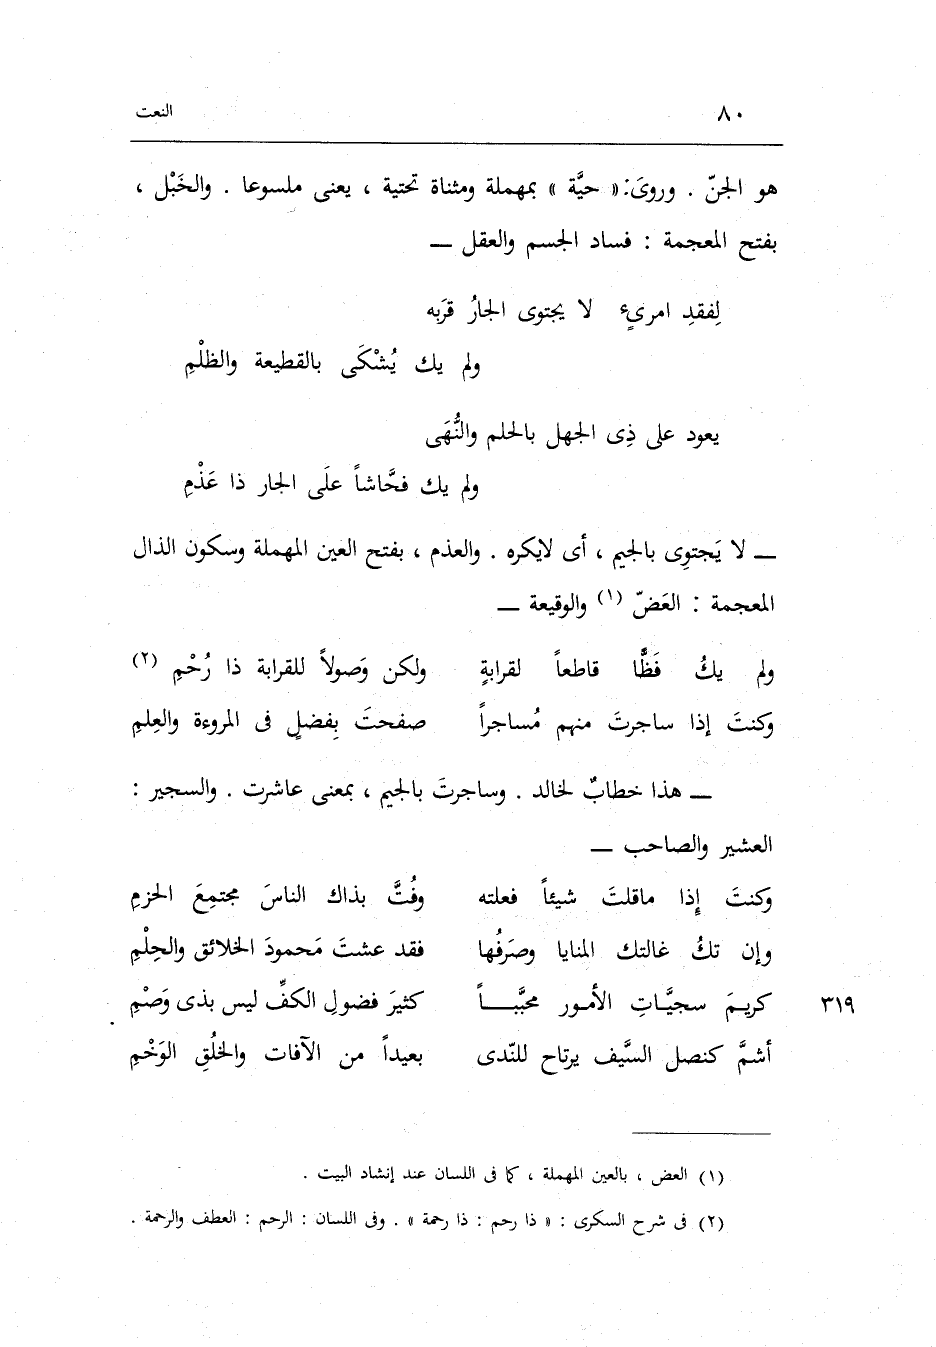 ٨٠ النعت
هو الجنّ . وروىَ: « حيَّة » بمهملة ومثناة تحتية ، يعنى ملسوعا . والخَبْل ،
بفتح المعجمة : فساد الجسم والعقل —
لِفقدِ امرىٍء لا يجتوى الجارُ قرَبه
ولم يك يُشْكَى بالقطيعة والظلْمِ
يعود على ذِى الجهل بالحلم والنُّهَى
ولم يك فحَّاشاً علَى الجار ذا عَذْمِ
— لا يَجتوِى بالجيم ، أى لايكره . والعذم ، بفتح العين المهملة وسكون الذال
المعجمة : العَضّ (١) والوقيعة —
ولم يكُ فَظًّا قاطعاً لقرابةٍ ولكن وَصولاً للقرابة ذا رُحْمِ (٢)
وكنتَ إذا ساجرتَ منهم مُساجراً صفحتَ بِفضلٍ فى المروءة والعِلمِ
— هذا خطابٌ لخالد . وساجرتَ بالجيم ، بمعنى عاشرت . والسجير :
العشير والصاحب —
وكنتَ إِذا ماقلتَ شيئاً فعلته وفُتَّ بذاك الناسَ مجتمِعَ الحزمِ
وإن تكُ غالتك المنايا وصَرفُها فقد عشتَ مَحمودَ الخلائق والحِلْمِ
٣١٩ كريمَ سجيَّاتِ الأمور محبَّبــاً كثيرَ فضولِ الكفِّ ليس بذى وَصْمِ
أشمَّ كنصل السَّيف يرتاح للنّدى بعيداً من الآفات والخلُقِ الوَخْمِ
(١) العض ، بالعين المهملة ، كما فى اللسان عند إنشاد البيت .
(٢) فى شرح السكرى : « ذا رحم : ذا رحمة » . وفى اللسان : الرحم : العطف والرحمة .